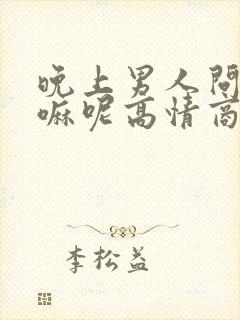 晚上男人问
嘛呢高情商
李松益